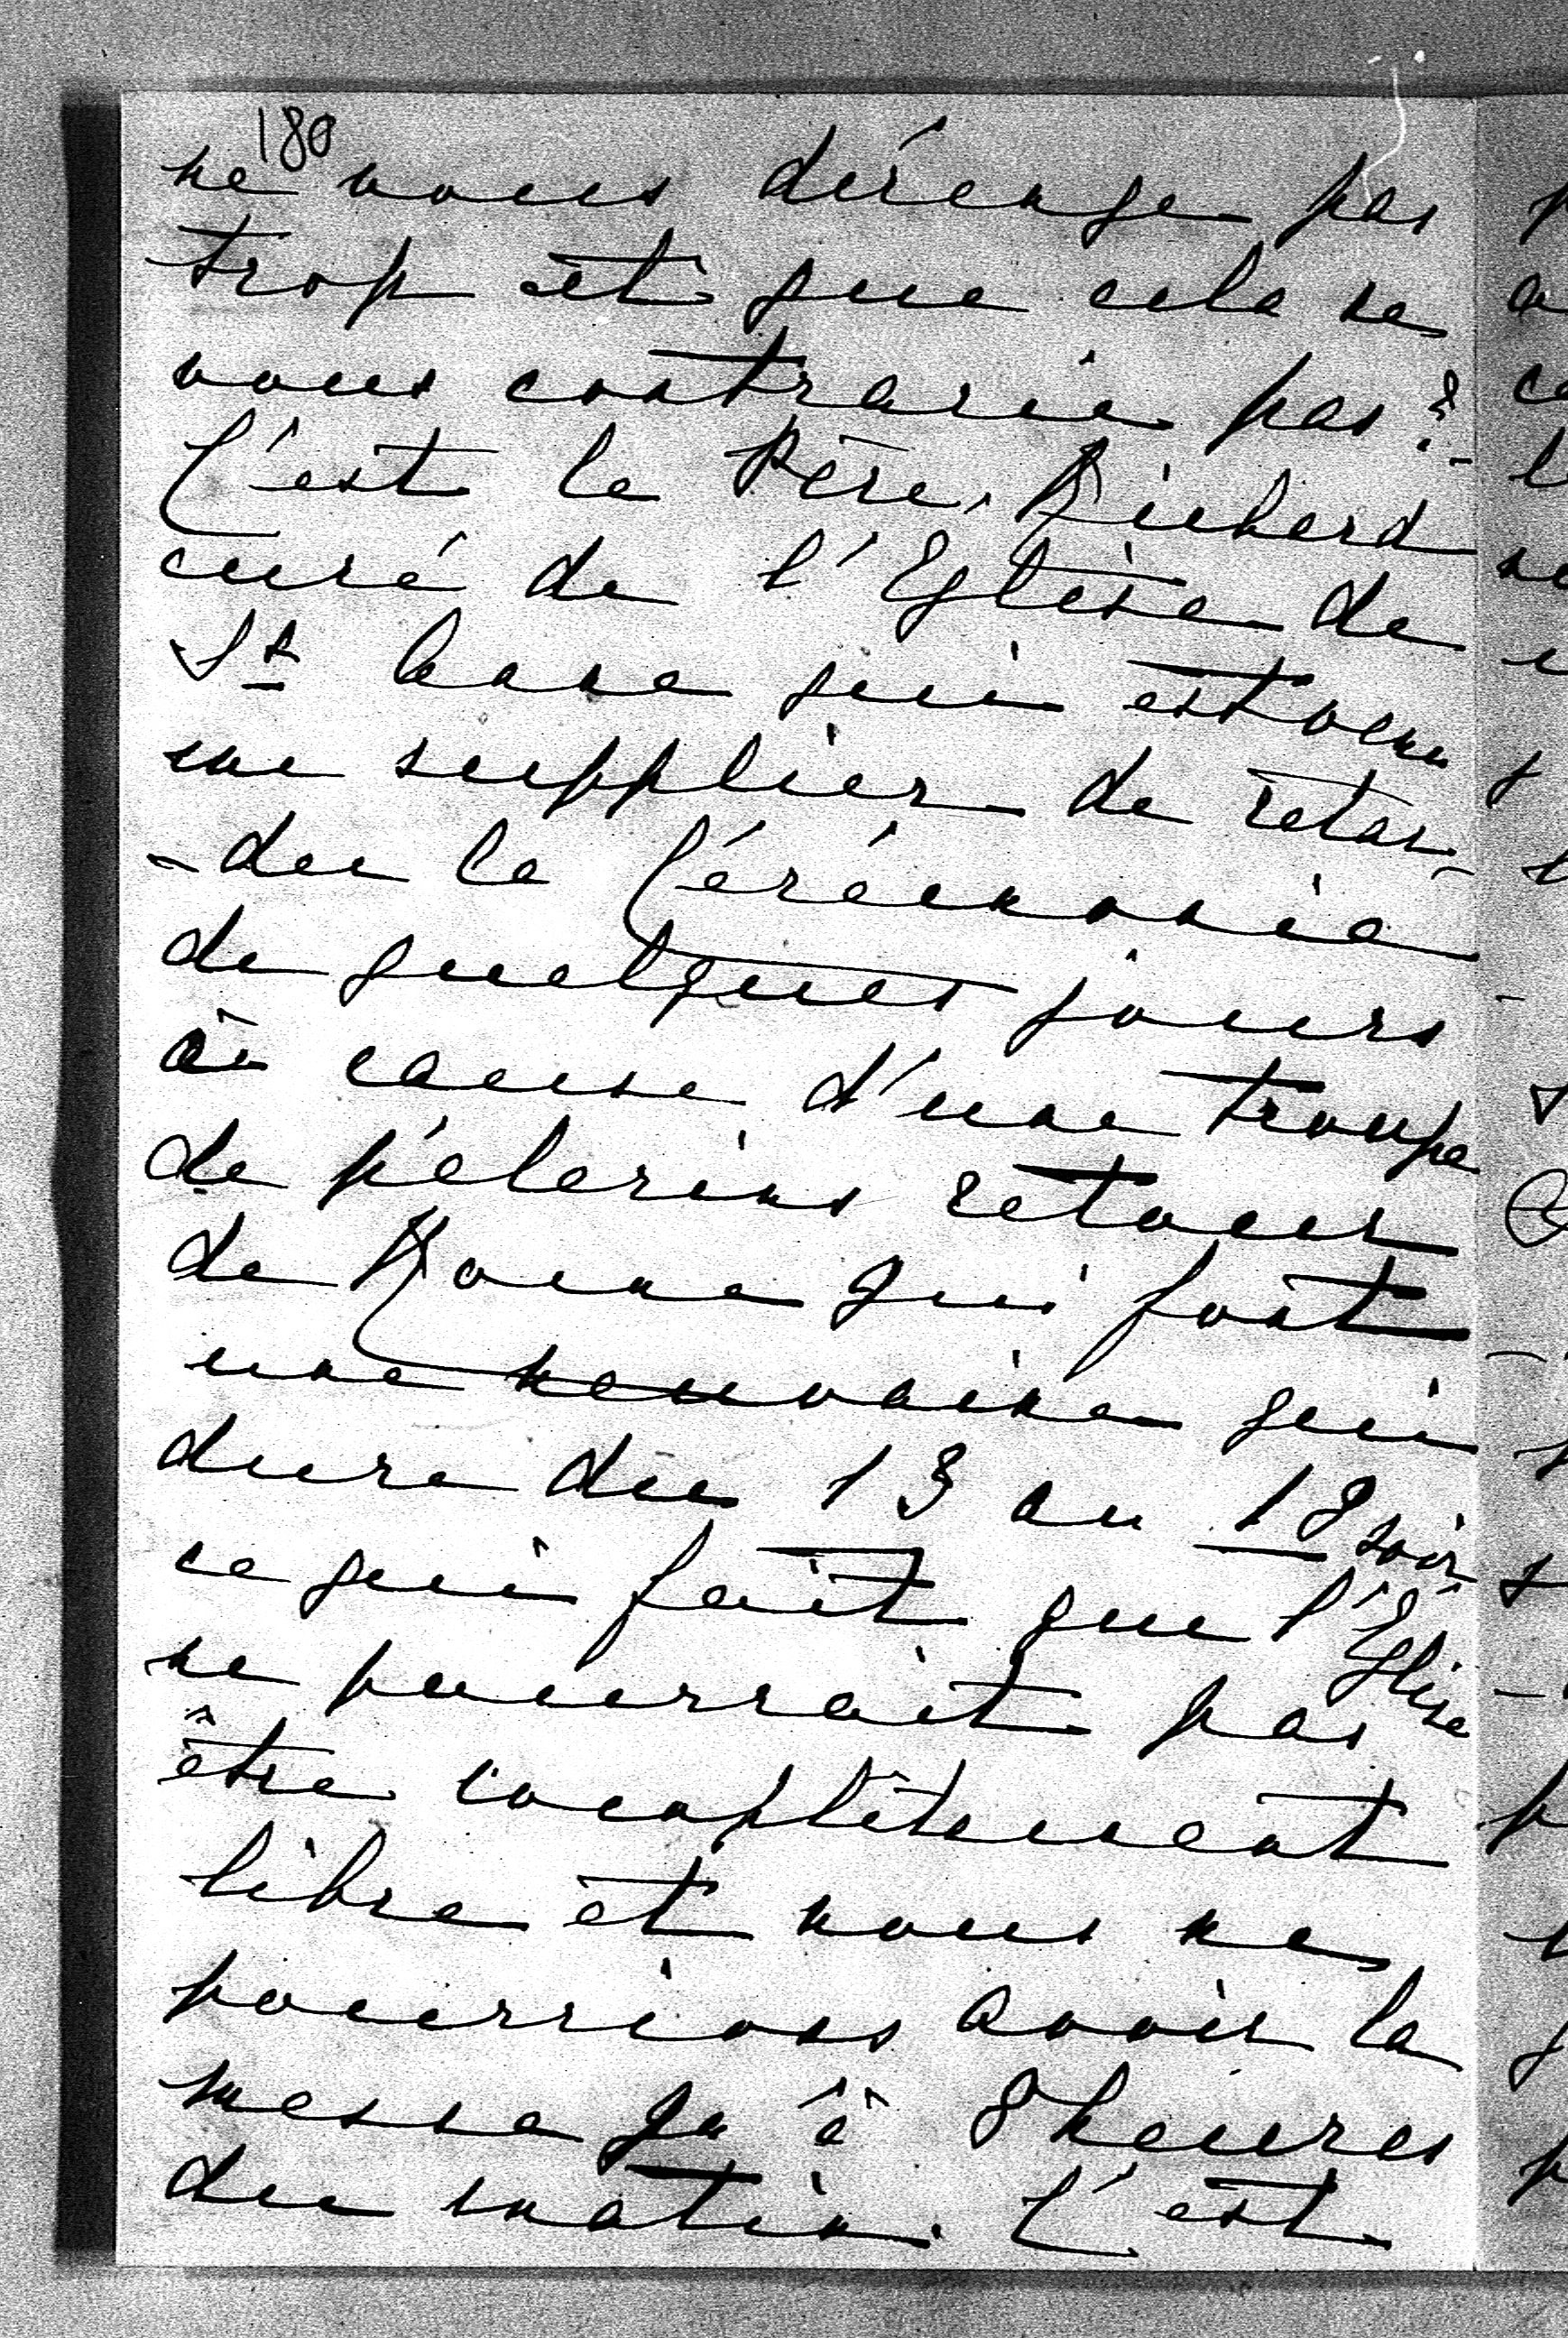 180
ne vous dérange pas
trop et que cela ne
vous contrarie pas ?
C'est le Père Richard
curé de l'Eglise de
St
qui est venu
me supplier de retar-
-der la Cérémonie
de quelques jours
à cause d'une troupe
de pélerins retour
de Rome qui font
une neuvaine qui
dure du 13 au 18 soir
ce qui fait que l'Eglise
ne pourrait pas
être complètement
libre et nous ne
pourrions avoir la
messe qu'à 8 heures
du matin. C'est